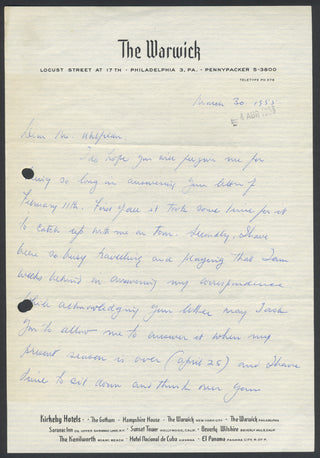 The Warwick
LOCUST STREET AT 17TH · PHILADELPHIA 3, PA. · PENNYPACKER 5-3800
TELETYPE PH 276
March 30. 1953
Dear Mr.
I do hope you will forgive me for
being so long in answering your letter of
February 11th. First of all it took some time for it
to catch up with me on tour. Secondly, I have
been so busy travelling and playing that I am
weeks behind in answering my correspondence
While acknowledging your letter may I ask
you to allow me to answer it when my
present season is over (April 25) and I have
time to sit down and think over your
Kirkeby Hotels · The Gotham · Hampshire House · The Warwick NEW YORK CITY · The Warwick PHILADELPHIA
Saranac Inn ON UPPER SARANAC LAKE, N.Y. · Sunset Tower HOLLYWOOD, CALIF. · Beverly Wilshire BEVERLY HILLS, CALIF.
The Kenilworth MIAMI BEACH · Hotel Nacional de Cuba HAVANA · El Panama PANAMA CITY, R. OF P.